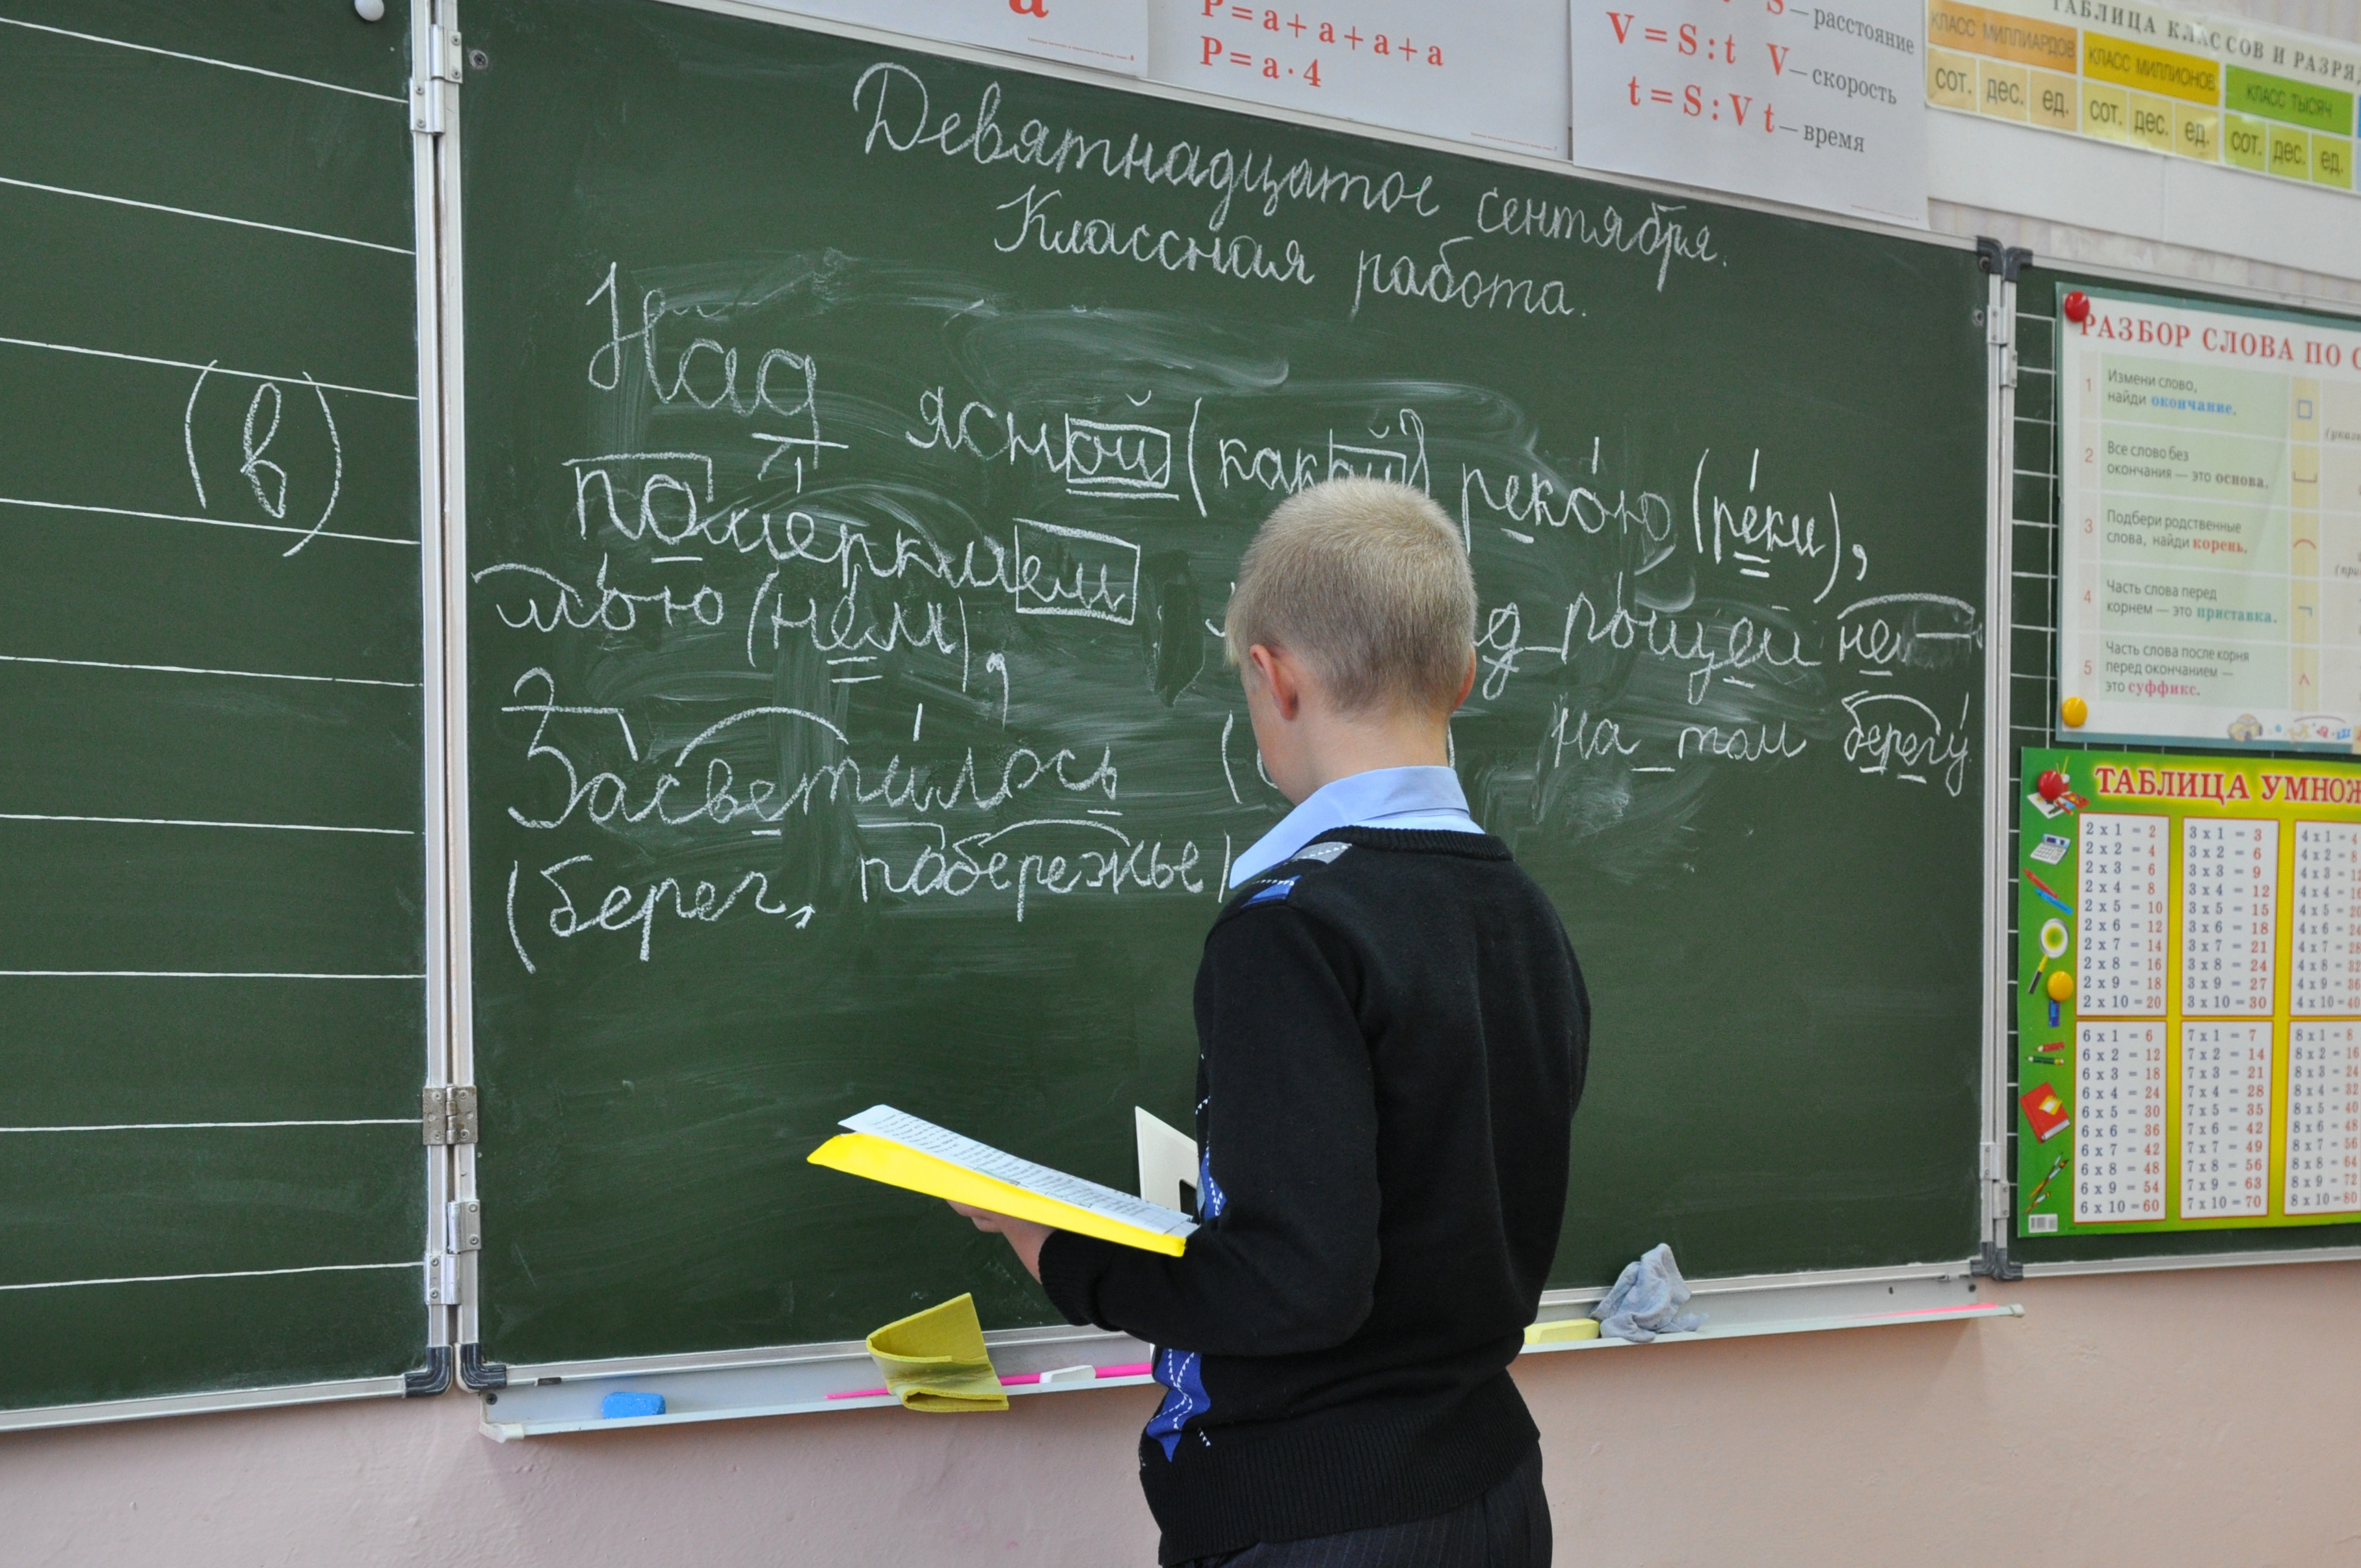 a
P = a + a + a + a
P = a · 4
S — расстояние
V = S : t V — скорость
t = S : V t — время
ТАБЛИЦА КЛАССОВ И РАЗРЯД
КЛАСС МИЛЛИАРДОВ КЛАСС МИЛЛИОНОВ КЛАСС ТЫСЯЧ
СОТ. ДЕС. ЕД. СОТ. ДЕС. ЕД. СОТ. ДЕС. ЕД.
Девятнадцатое сентября.
Классная работа.
(в)
Над ясной (какой) рекою (реки),
померкшем
мою (нем), рощей нем
Засветилось на том берегу
(берег, побережье)
РАЗБОР СЛОВА ПО С
1 Измени слово,
найди окончание.
2 Все слово без
окончания — это основа.
3 Подбери родственные
слова, найди корень.
4 Часть слова перед
корнем — это приставка.
5 Часть слова после корня
перед окончанием —
это суффикс.
ТАБЛИЦА УМНОЖ
2 x 1 = 2 3 x 1 = 3 4 x 1 = 4
2 x 2 = 4 3 x 2 = 6 4 x 2 = 8
2 x 3 = 6 3 x 3 = 9 4 x 3 = 12
2 x 4 = 8 3 x 4 = 12 4 x 4 = 16
2 x 5 = 10 3 x 5 = 15 4 x 5 = 20
2 x 6 = 12 3 x 6 = 18 4 x 6 = 24
2 x 7 = 14 3 x 7 = 21 4 x 7 = 28
2 x 8 = 16 3 x 8 = 24 4 x 8 = 32
2 x 9 = 18 3 x 9 = 27 4 x 9 = 36
2 x 10 = 20 3 x 10 = 30 4 x 10 = 40
6 x 1 = 6 7 x 1 = 7 8 x 1 = 8
6 x 2 = 12 7 x 2 = 14 8 x 2 = 16
6 x 3 = 18 7 x 3 = 21 8 x 3 = 24
6 x 4 = 24 7 x 4 = 28 8 x 4 = 32
6 x 5 = 30 7 x 5 = 35 8 x 5 = 40
6 x 6 = 36 7 x 6 = 42 8 x 6 = 48
6 x 7 = 42 7 x 7 = 49 8 x 7 = 56
6 x 8 = 48 7 x 8 = 56 8 x 8 = 64
6 x 9 = 54 7 x 9 = 63 8 x 9 = 72
6 x 10 = 60 7 x 10 = 70 8 x 10 = 80